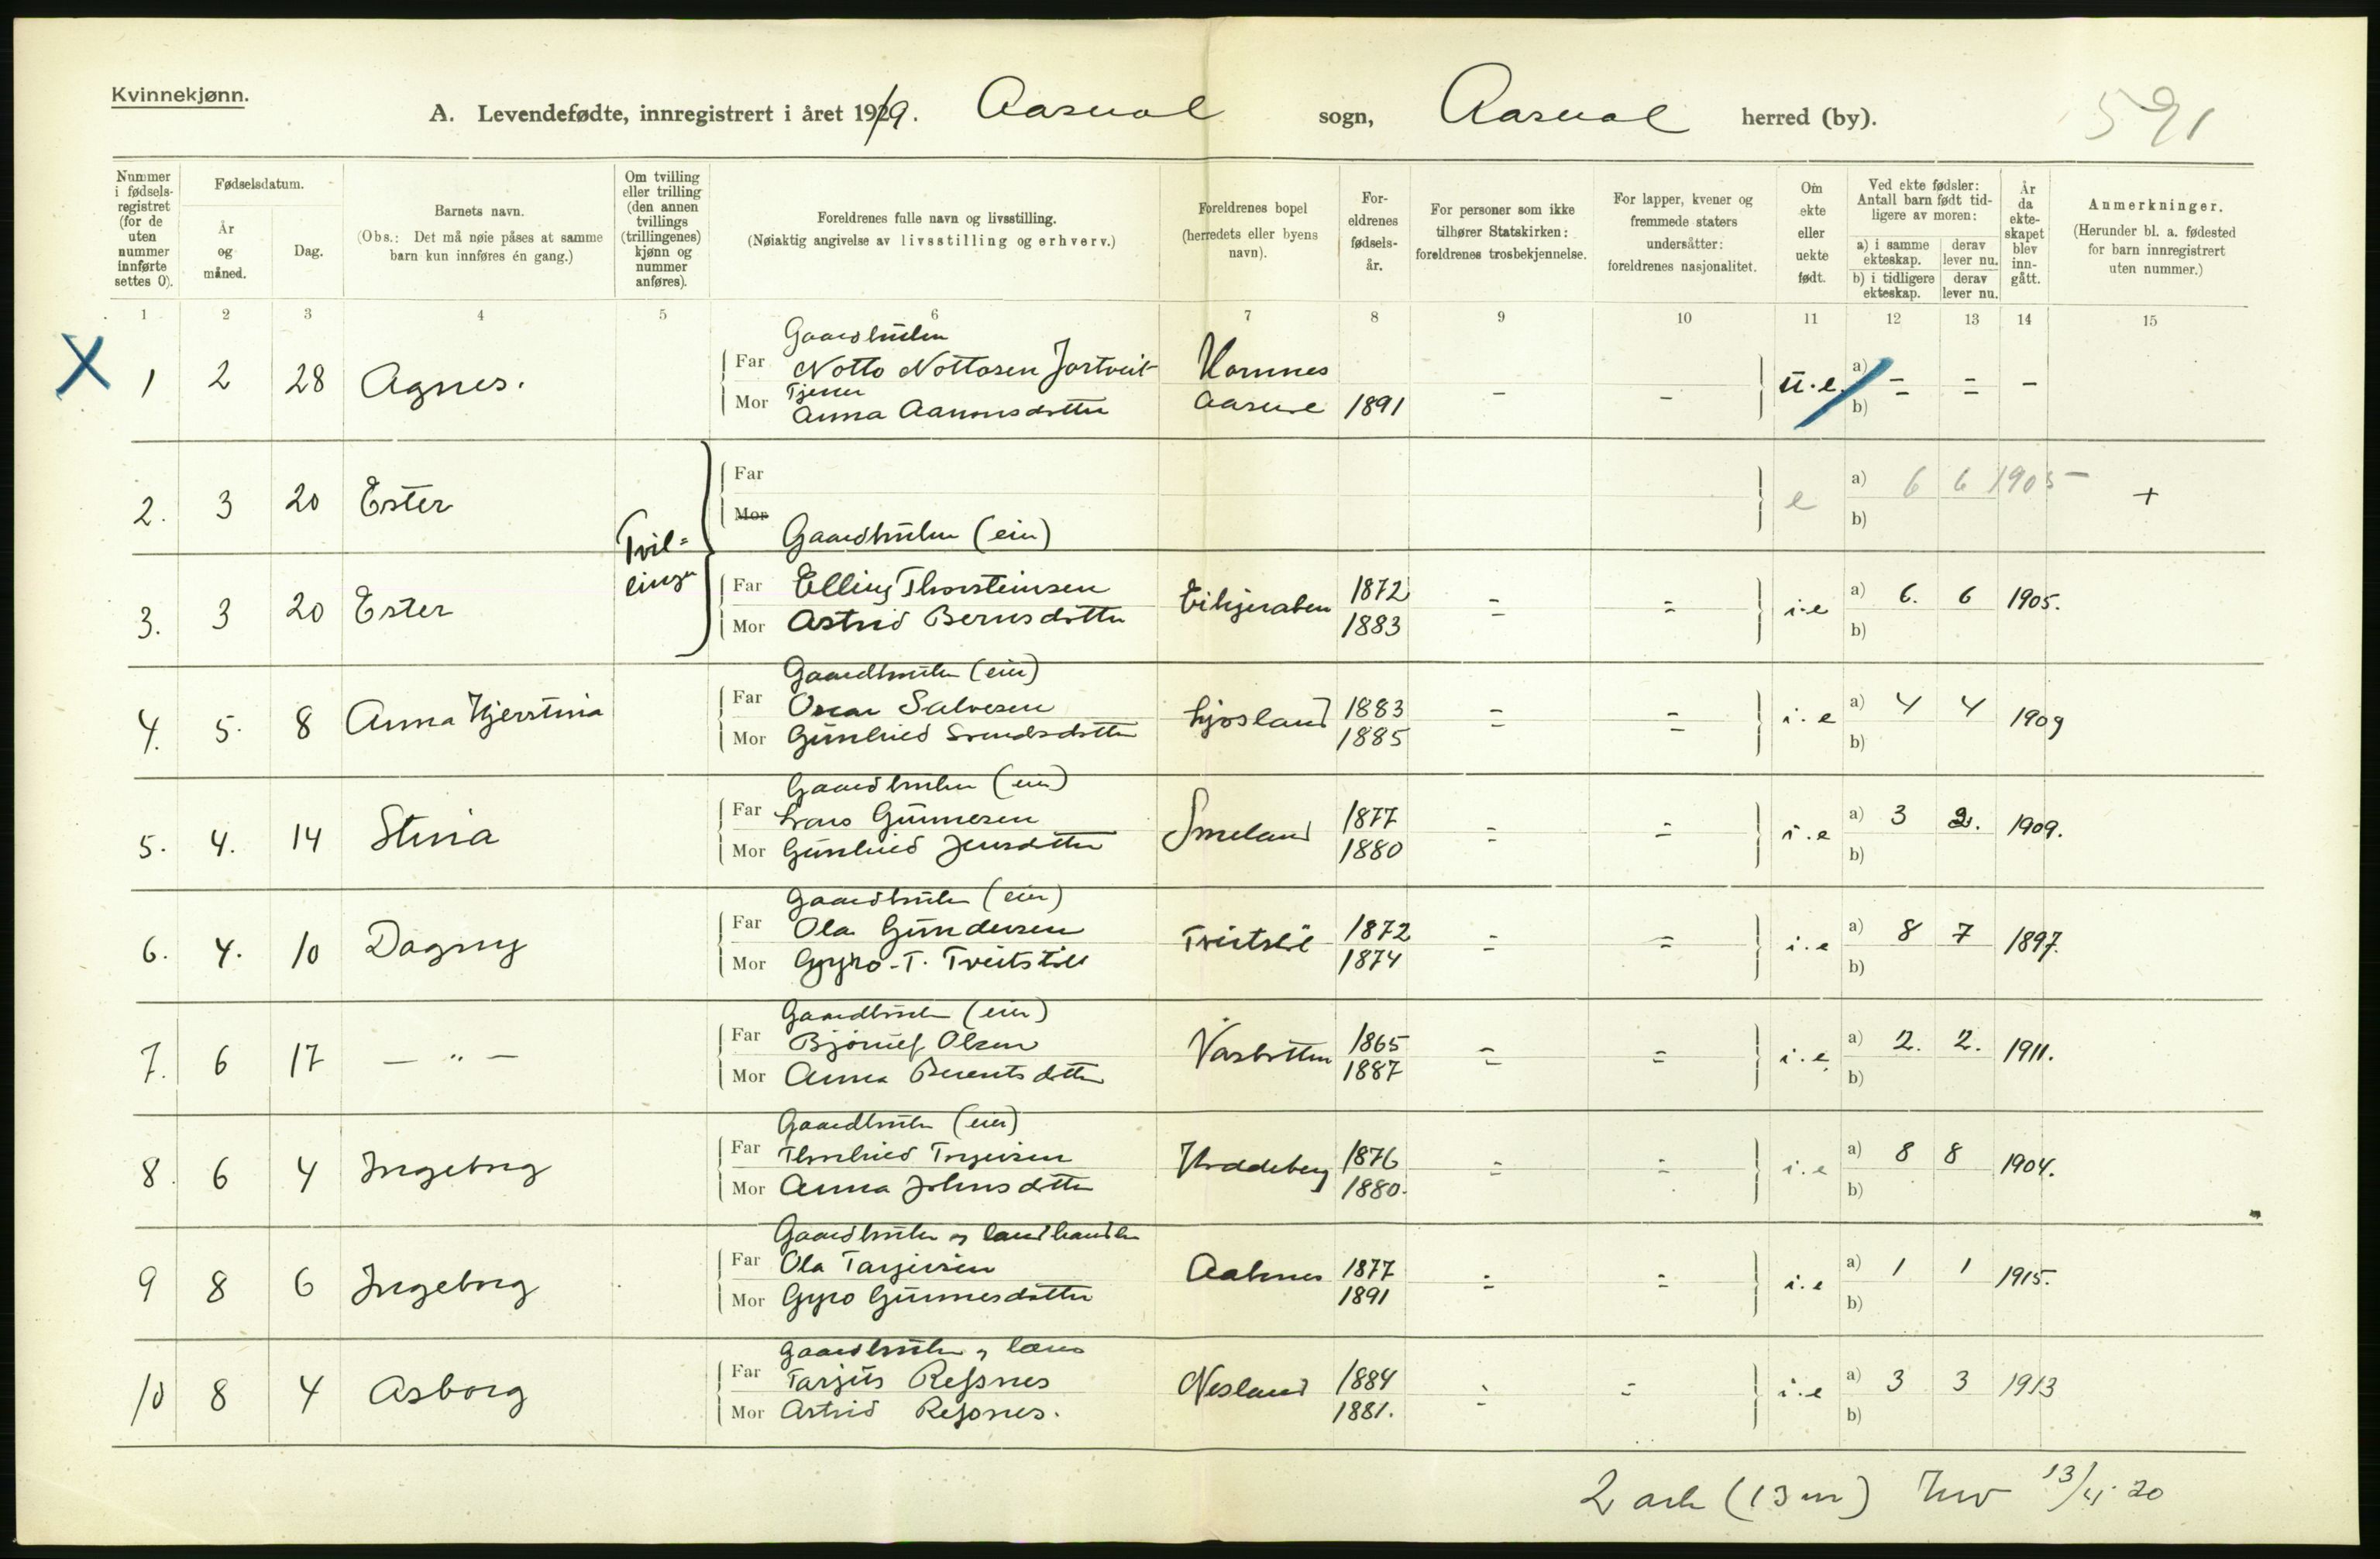 Kvinnekjønn.
A. Levendefødte, innregistrert i året 1919. Aasral sogn, Aasral herred (by). 591
Nummer i fødsels-registret (for de uten nummer innførte settes 0).
Fødselsdatum.
År og måned.
Dag.
Barnets navn.
(Obs.: Det må nøie påses at samme barn kun innføres én gang.)
Om tvilling eller trilling (den annen tvillings (trillingenes) kjønn og nummer anføres).
Foreldrenes fulle navn og livsstilling.
(Nøiaktig angivelse av livsstilling og erhverv.)
Foreldrenes bopel (herredets eller byens navn).
Foreldrenes fødselsår.
For personer som ikke tilhører Statskirken: foreldrenes trosbekjennelse.
For lapper, kvener og fremmede staters undersåtter: foreldrenes nasjonalitet.
Om ekte eller uekte født.
Ved ekte fødsler: Antall barn født tidligere av moren:
a) i samme ekteskap. derav lever nu.
b) i tidligere ekteskap. derav lever nu.
År da ekteskapet blev inngått.
Anmerkninger.
(Herunder bl. a. fødested for barn innregistrert uten nummer.)
1 2 3 4 5 6 7 8 9 10 11 12 13 14 15
Gaardbruker
X 1 2 28 Agnes. Far Notto Nottosen Jortveit Hornnes
Tjener
Mor Anna Aanonsdotter Aaseral 1891 - - u.e. a) b) = = -
2. 3 20 Ester Tvil= Far Mor e a) 6 6 1905 - b) +
Gaardbruker (eier)
3. 3 20 Ester linger Far Elling Thorsteinsen Eikjeraben 1872 = = i.e a) 6. 6 1905.
Mor Astrid Bernsdotter 1883 b)
Gaardbruker (eier)
4. 5. 8 Anna Kjerstina Far Oscar Salvesen Ljosland 1883 = = i.e a) 4 4 1909
Mor Gunhild Svendsdotter 1885 b)
Gaardbruker (eier)
5. 4. 14 Stina Far Lars Gunnesen Smeland 1877 = = i.e a) 3 2. 1909.
Mor Gunhild Jensdotter 1880 b)
Gaardbruker (eier)
6. 4. 10 Dagny Far Ola Gundersen 1872 = = i.e a) 8 7 1897.
Mor Gyro T. 1874 b)
Gaardbruker (eier)
7. 6 17 — " — Far Bjønulf Olsen Vasbotten 1865 = = i.e. a) 2. 2. 1911.
Mor Anna Berentsdotter 1887 b)
Gaardbruker (eier)
8. 6 4 Ingeborg Far Thorlried Torgeirsen 1876 = = i.e a) 8 8 1904.
Mor Anna Johnsdotter 1880. b)
Gaardbruker og landhandler
9 8 6 Ingeborg Far Ola Targeirsen Aaknes 1877 = = i.e a) 1 1 1915.
Mor Gyro Gunnesdotter 1891 b)
Gaardbruker og lærer
10 8 4 Asborg Far Tarjus Refsnes Nesland 1884 = = i.e a) 3 3 1913
Mor Astrid Refsnes. 1881. b)
2 ark (13 m) 13/4 20